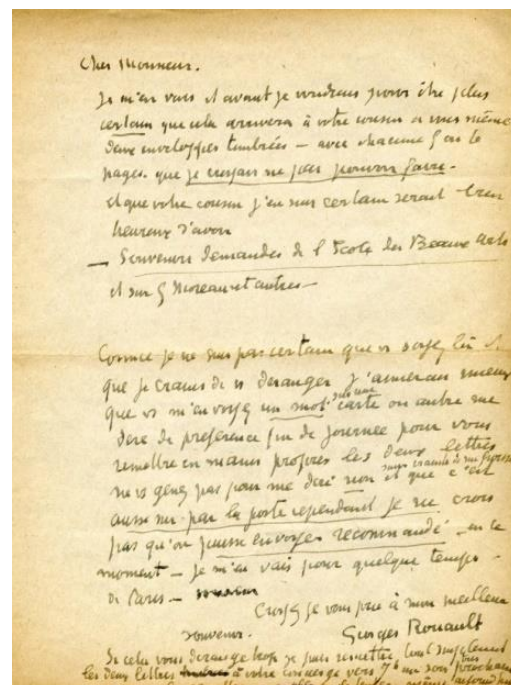 Cher Monsieur.
Je m'en vais et avant je voudrais pour être plus
certain que cela arrivera à votre cousin
deux enveloppes timbrées — avec chacune 5 ou 6
pages. que je croyais ne pas pouvoir faire -
et que votre cousin j'en suis certain serait bien
heureux d'avoir
— Souvenirs demandés de l'école des Beaux Arts
et sur G Moreau et autres —
Comme je ne suis pas certain que vs soyez
que je crains de vs déranger j'aimerais mieux
que vs m'envoyez un mot sur une carte ou autre me
de préférence fin de journée pour vous
remettre en mains propres les deux lettres
ne vs gênez pas pour me dire non et que c'est
aussi sûr par la poste cependant je ne crois
pas qu'on puisse envoyer recommandé en ce
moment — Je m'en vais pour quelque temps
de Paris —
Croyez je vous prie à mon meilleur
souvenir.
Georges Rouault
Si cela vous dérange trop je puis remettre tout simplement
les deux lettres à votre concierge vers 7h un soir prochain